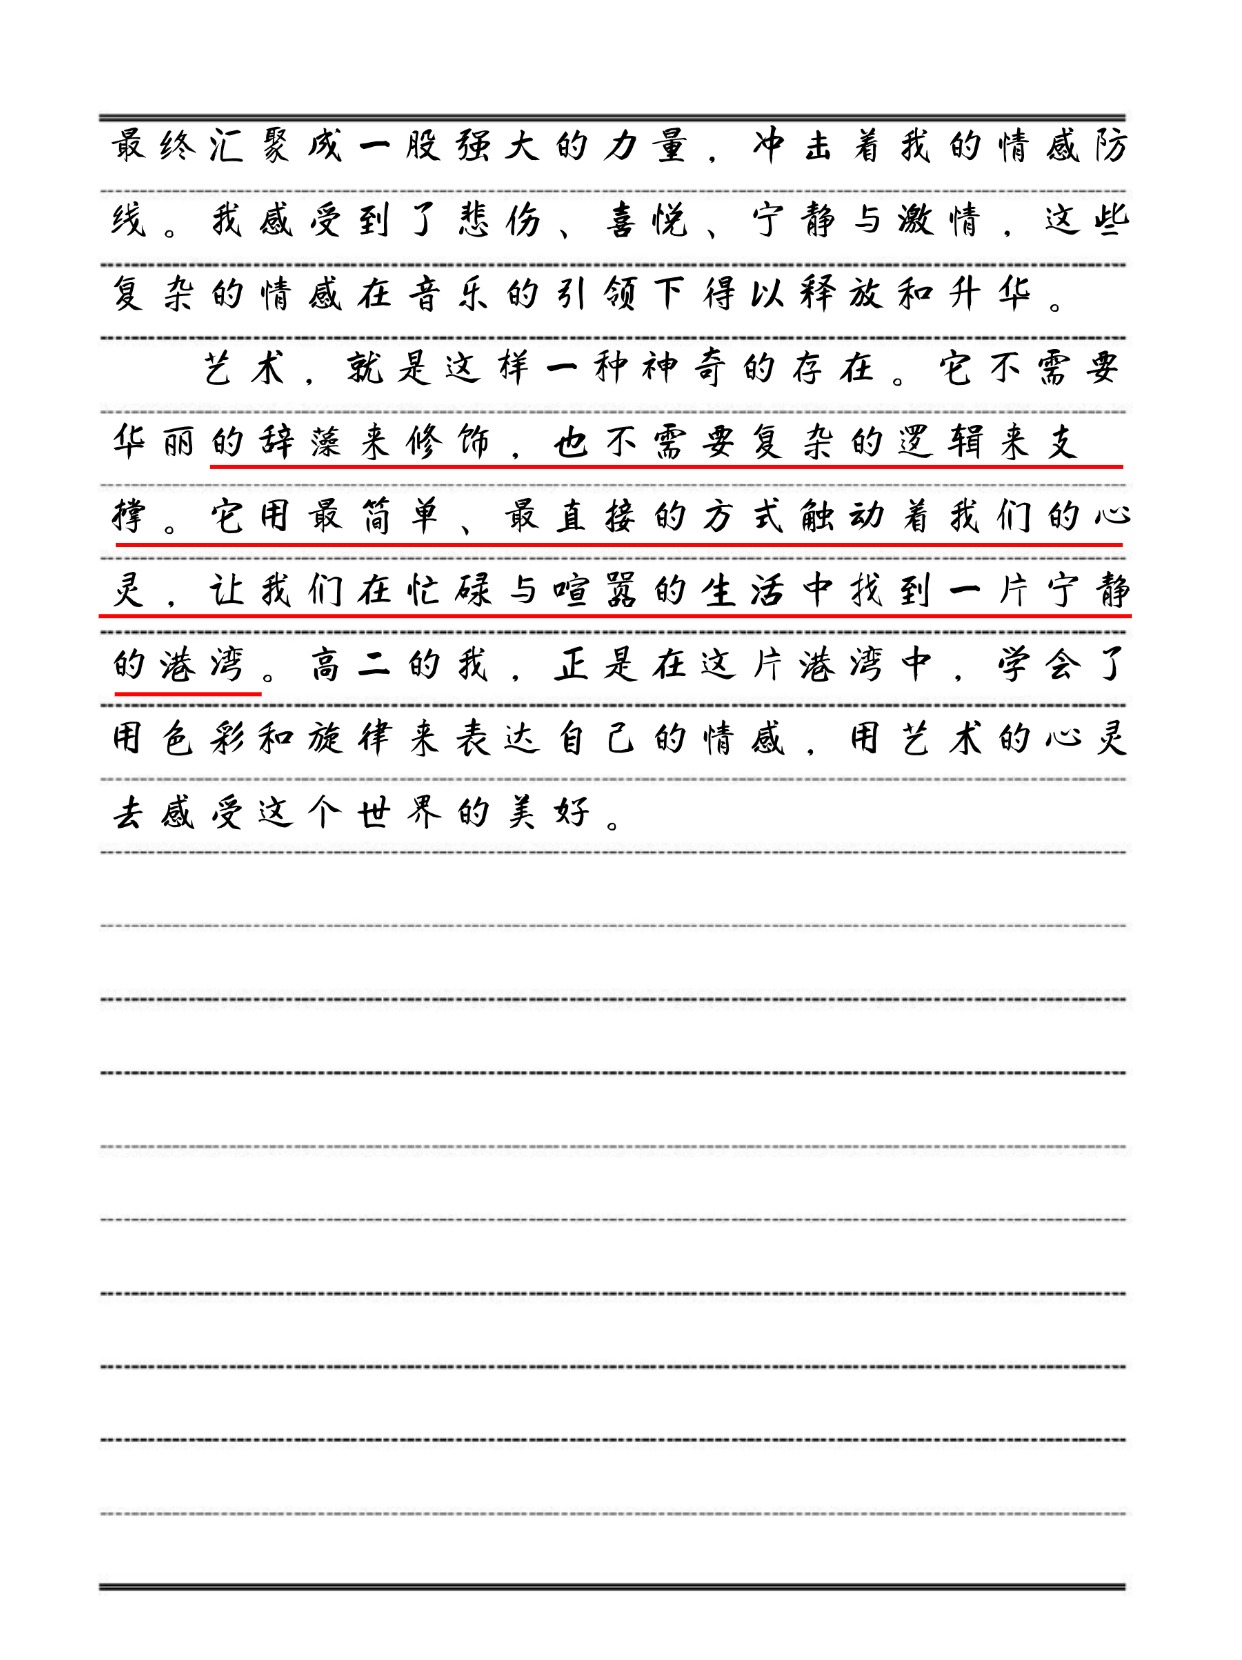 最终汇聚成一股强大的力量，冲击着我的情感防
线。我感受到了悲伤、喜悦、宁静与激情，这些
复杂的情感在音乐的引领下得以释放和升华。
艺术，就是这样一种神奇的存在。它不需要
华丽的辞藻来修饰，也不需要复杂的逻辑来支
撑。它用最简单、最直接的方式触动着我们的心
灵，让我们在忙碌与喧嚣的生活中找到一片宁静
的港湾。高二的我，正是在这片港湾中，学会了
用色彩和旋律来表达自己的情感，用艺术的心灵
去感受这个世界的美好。